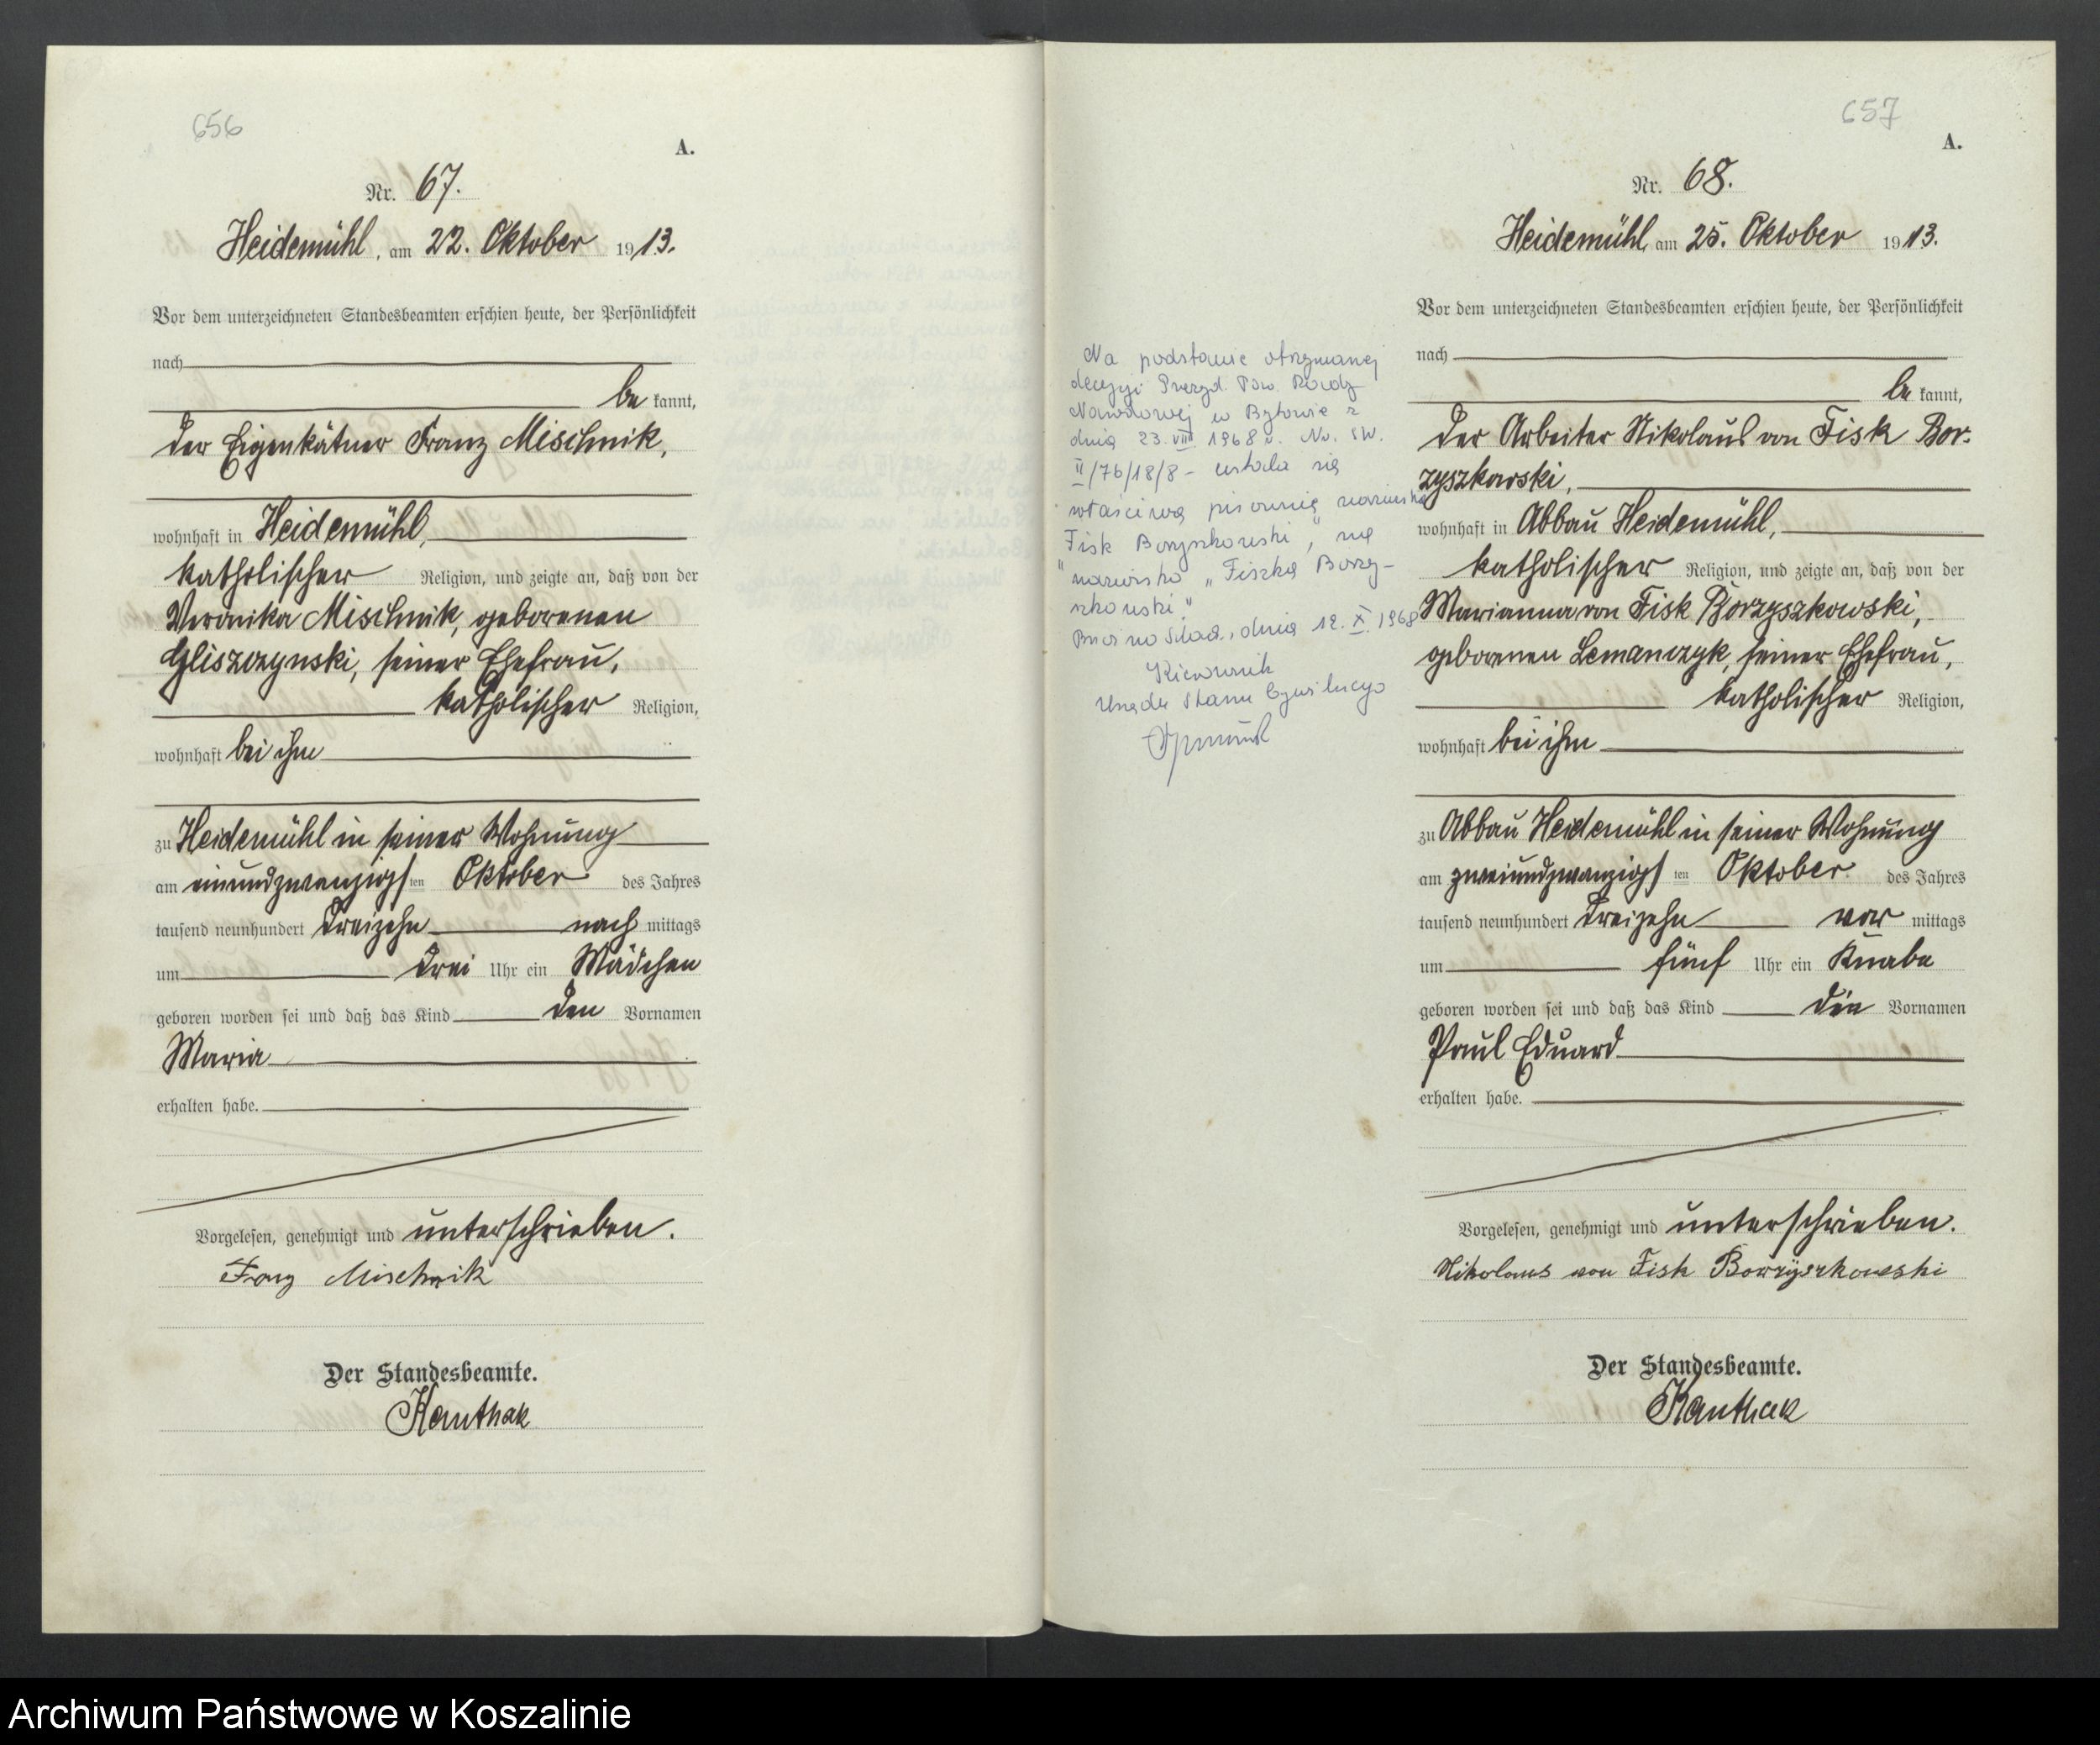 656
A.
Nr. 67.
Heidemühl, am 22. Oktober 1913.
Vor dem unterzeichneten Standesbeamten erschien heute, der Persönlichkeit
nach
be kannt,
der Eigenkätner Franz Mischnik,
wohnhaft in Heidemühl,
katholischer Religion, und zeigte an, daß von der
Veronika Mischnik, geborenen
Gliszczynski, seiner Ehefrau,
katholischer Religion,
wohnhaft bei ihm
zu Heidemühl in seiner Wohnung
am einundzwanzigsten Oktober des Jahres
tausend neunhundert dreizehn nach mittags
um drei Uhr ein Mädchen
geboren worden sei und daß das Kind den Vornamen
Maria
erhalten habe.
Vorgelesen, genehmigt und unterschrieben.
Franz Mischnik
Der Standesbeamte.
Kauthak
657
A.
Nr. 68.
Heidemühl, am 25. Oktober 1913.
Vor dem unterzeichneten Standesbeamten erschien heute, der Persönlichkeit
nach
be kannt,
der Arbeiter Nikolaus von Fisk Bor-
zyszkowski,
wohnhaft in Abbau Heidemühl,
katholischer Religion, und zeigte an, daß von der
Marianna von Fisk Borzyszkowski,
geborenen Lemanczyk, seiner Ehefrau,
katholischer Religion,
wohnhaft bei ihm
zu Abbau Heidemühl in seiner Wohnung
am zweiundzwanzigsten Oktober des Jahres
tausend neunhundert dreizehn vor mittags
um fünf Uhr ein Knabe
geboren worden sei und daß das Kind die Vornamen
Paul Eduard
erhalten habe.
Vorgelesen, genehmigt und unterschrieben.
Nikolaus von Fisk Borzyszkowski
Der Standesbeamte.
Kauthak
Na podstawie otrzymanej
decyzji Prezyd. Pow. Rady
Narodowej w Bytowie z
dnia 23.VIII 1968 r. Nr. SW.
II/76/18/8 - ustala się
właściwą pisownię nazwiska
"Fisk Borzyszkowski", na
nazwisko "Fiszka Borzy-
szkowski"
dnia 12.X.1968
Kierownik
Urzędu Stanu Cywilnego
Archiwum Państwowe w Koszalinie